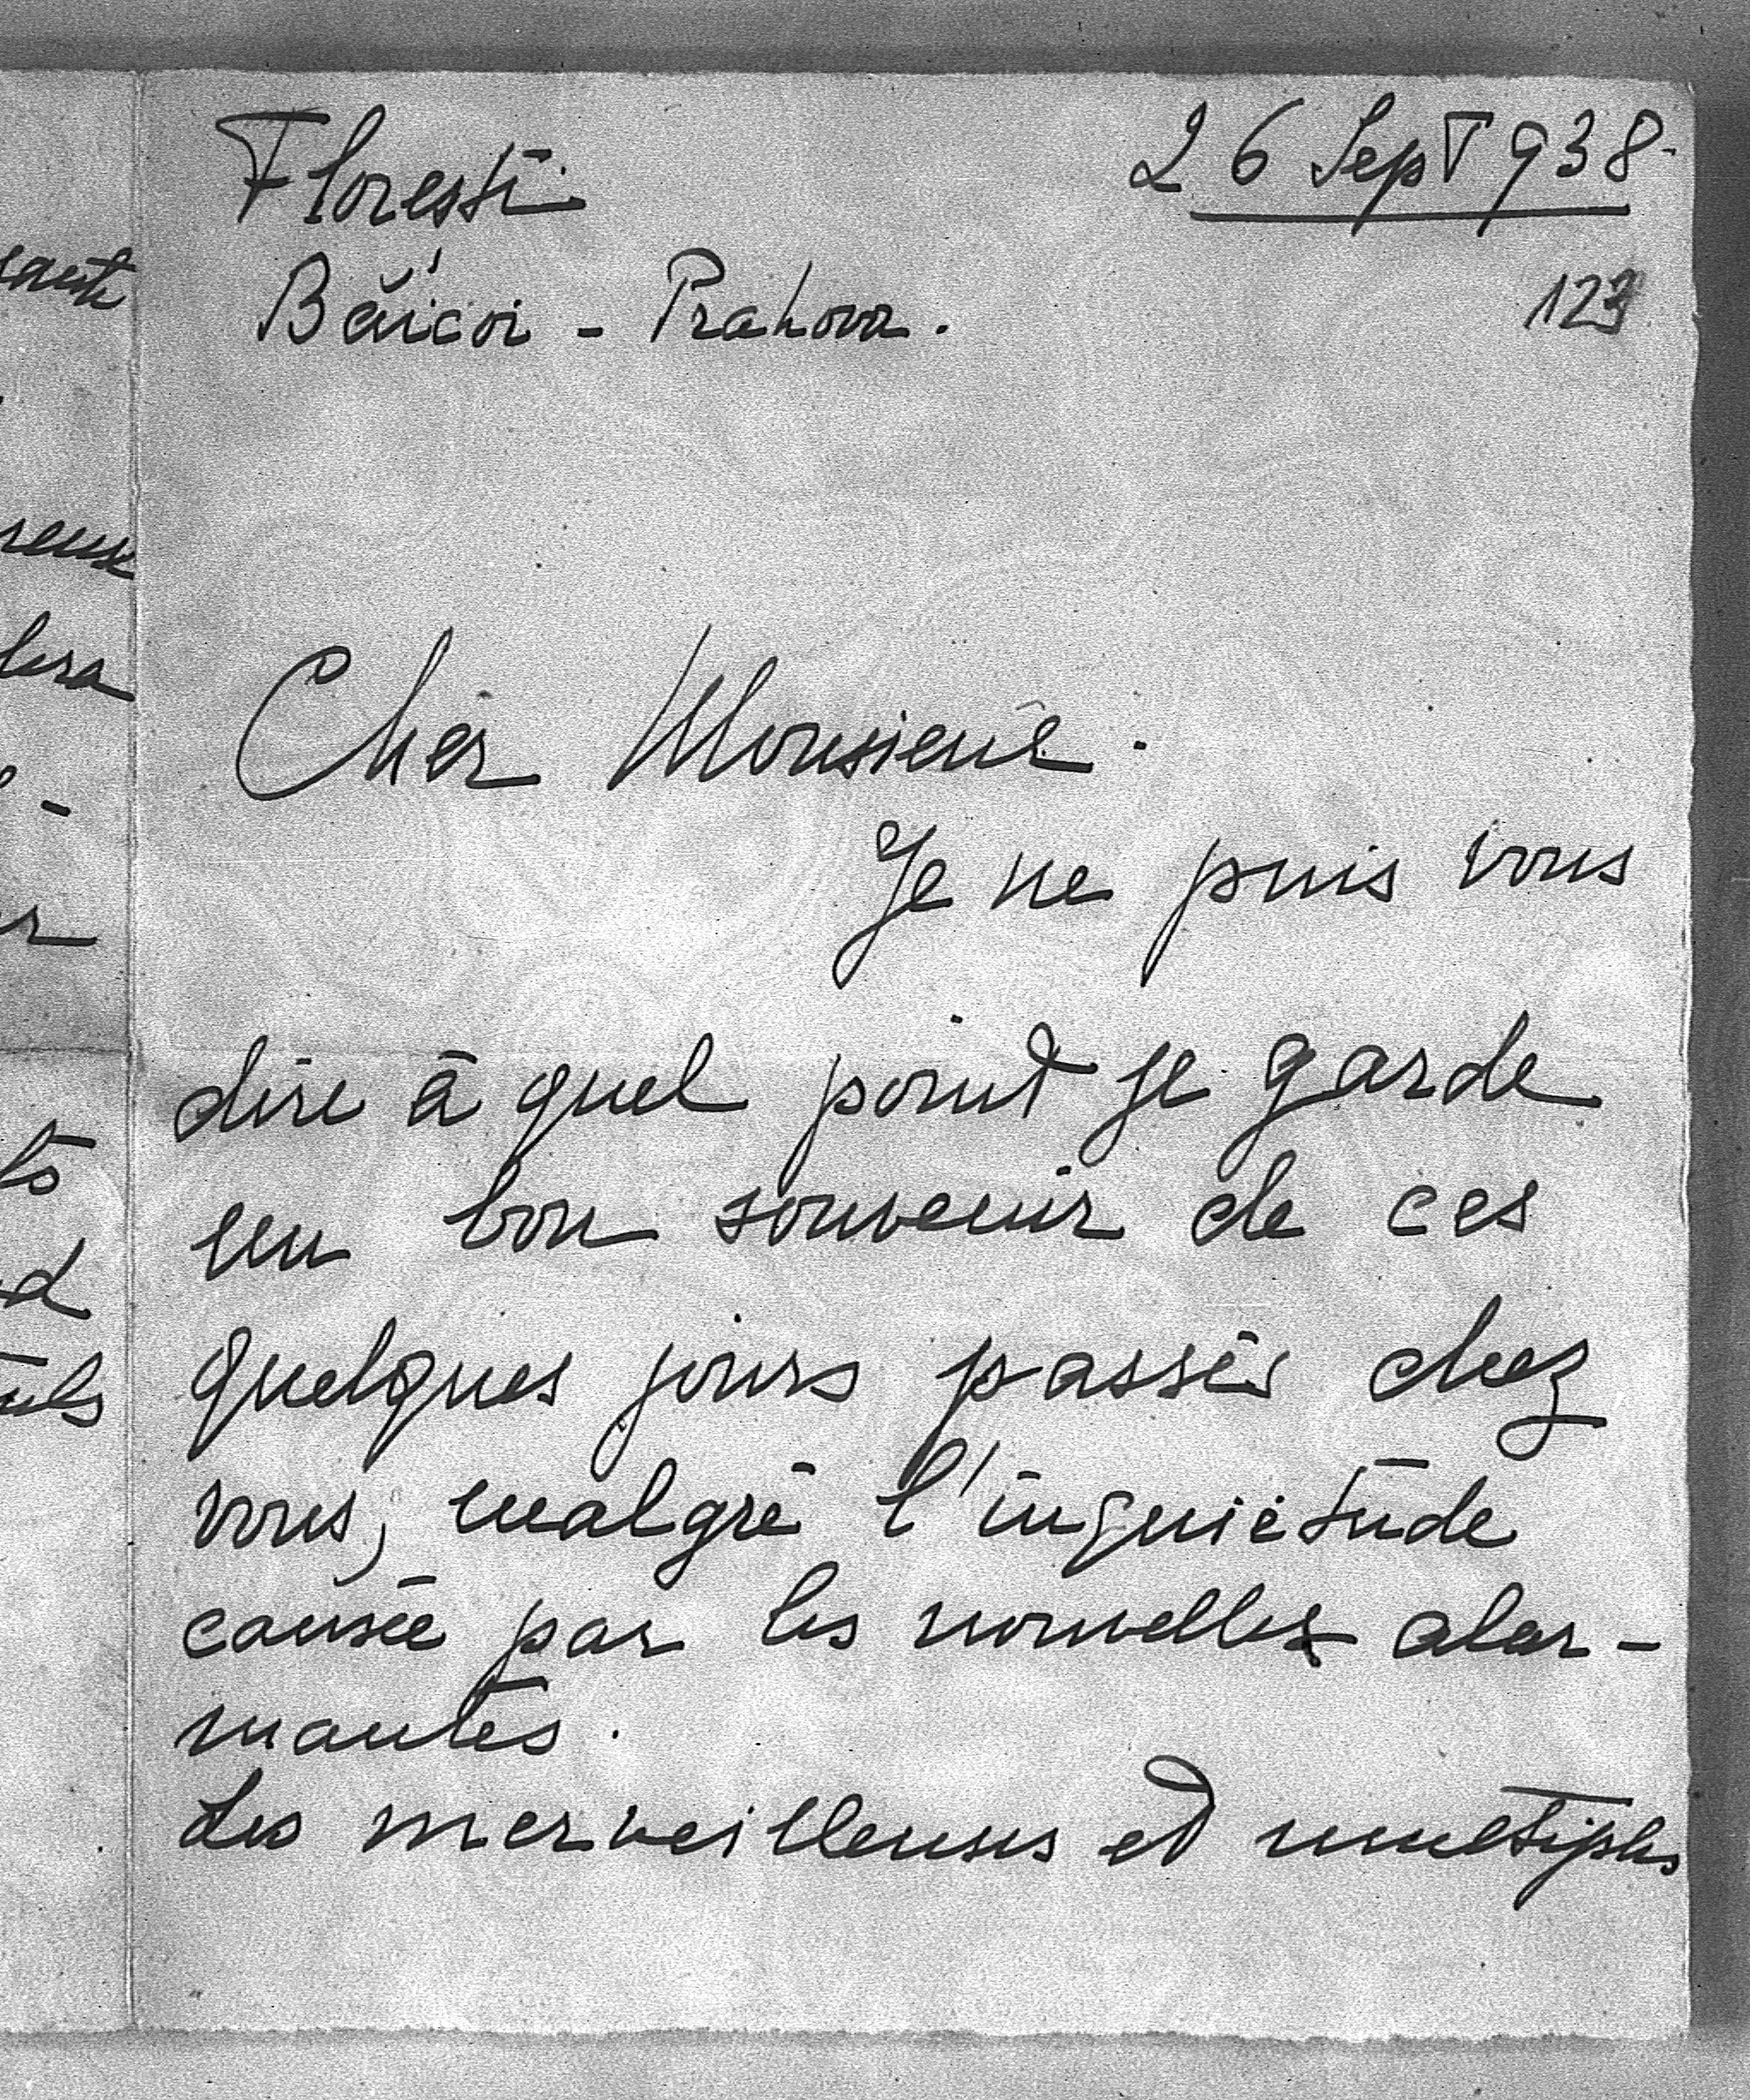 Florești
26 Sept 938
Băicoi - Prahova.
123
Cher Monsieur.
Je ne puis vous
dire à quel point je garde
un bon souvenir de ces
quelques jours passés chez
vous, malgré l'inquiétude
causée par les nouvelles alar-
mantes.
Les merveilleuses et multiples